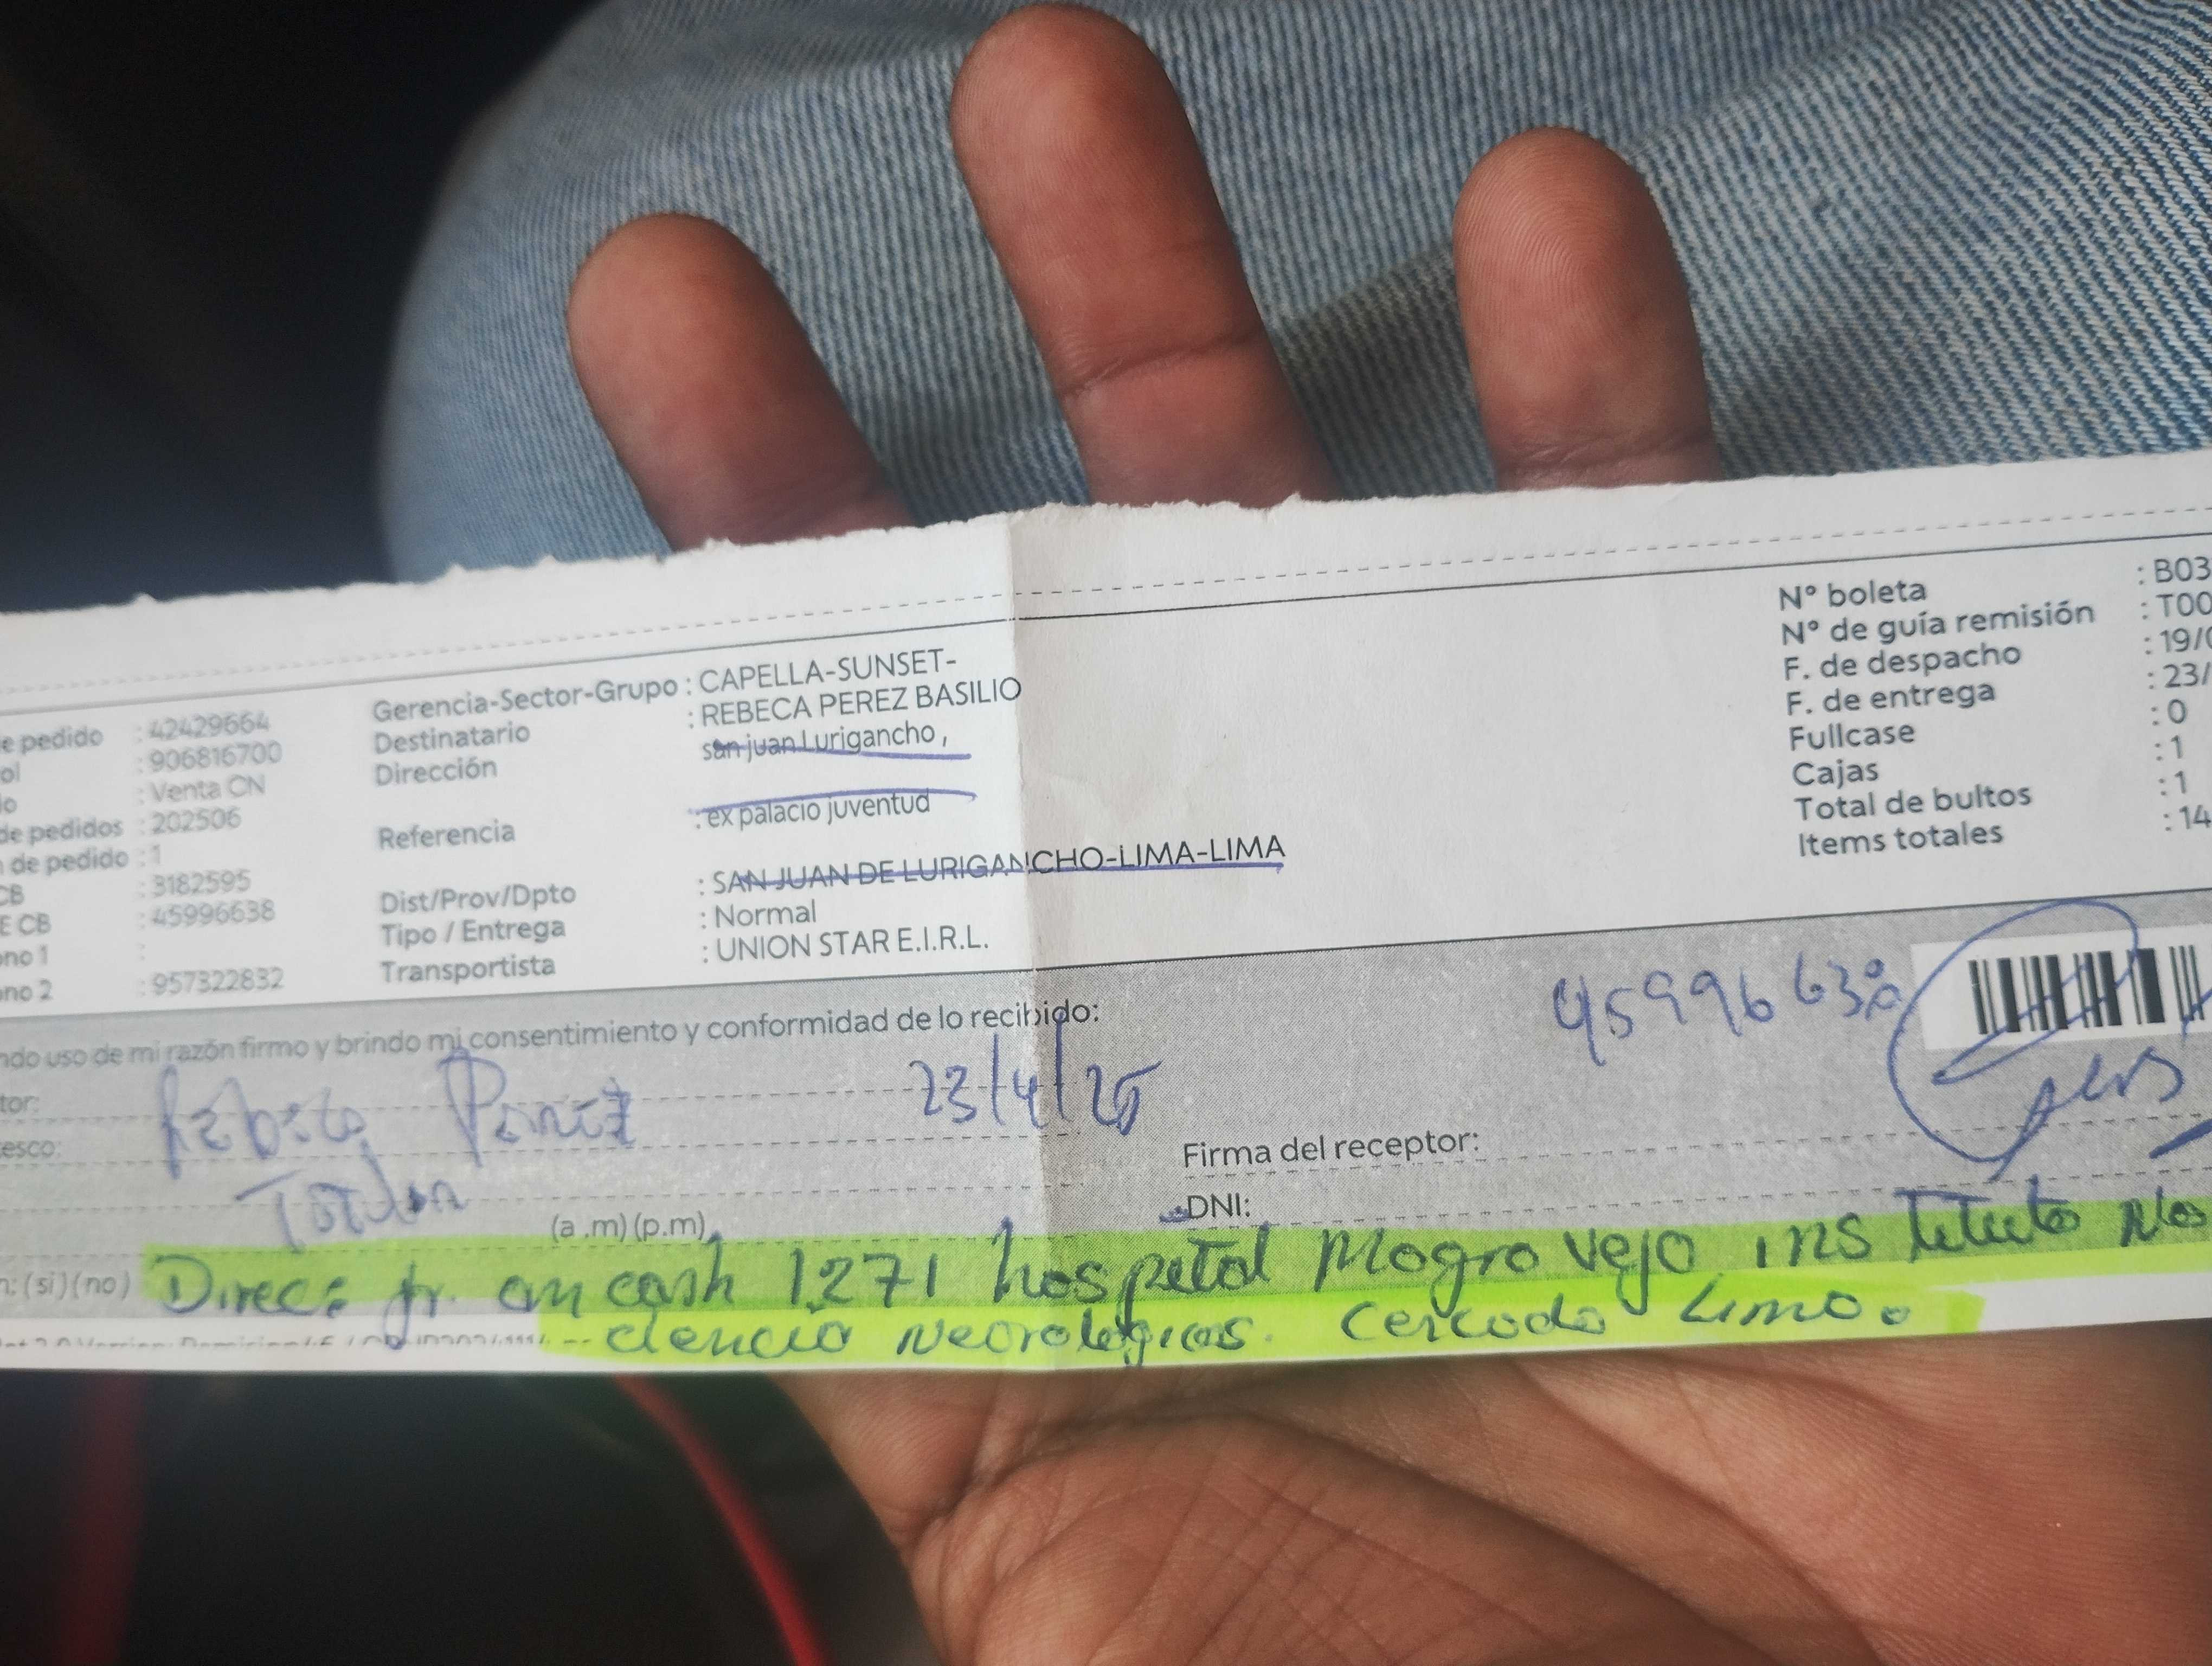 e pedido : 42429664
ol : 906816700
lo : Venta CN
de pedidos : 202506
n de pedido : 1
CB : 3182595
E CB : 45996638
ono 1 :
ono 2 : 957322832
Gerencia-Sector-Grupo : CAPELLA-SUNSET-
Destinatario : REBECA PEREZ BASILIO
Dirección san juan Lurigancho,
Referencia : ex palacio juventud
Dist/Prov/Dpto : SAN JUAN DE LURIGANCHO-LIMA-LIMA
Tipo / Entrega : Normal
Transportista : UNION STAR E.I.R.L.
N° boleta : B03
N° de guía remisión : T00
F. de despacho : 19/0
F. de entrega : 23/
Fullcase : 0
Cajas : 1
Total de bultos : 1
Items totales : 14
ndo uso de mi razón firmo y brindo mi consentimiento y conformidad de lo recibido:
45996638
tor: Rebeca Perez 23/4/25
esco: Titular
Firma del receptor:
(a .m) (p.m) DNI:
n: (si) (no) Direc: Jr. an cash 1271 hospetal Mogro vejo ins tituto
ciencia neorológicas. Cercado Lima.